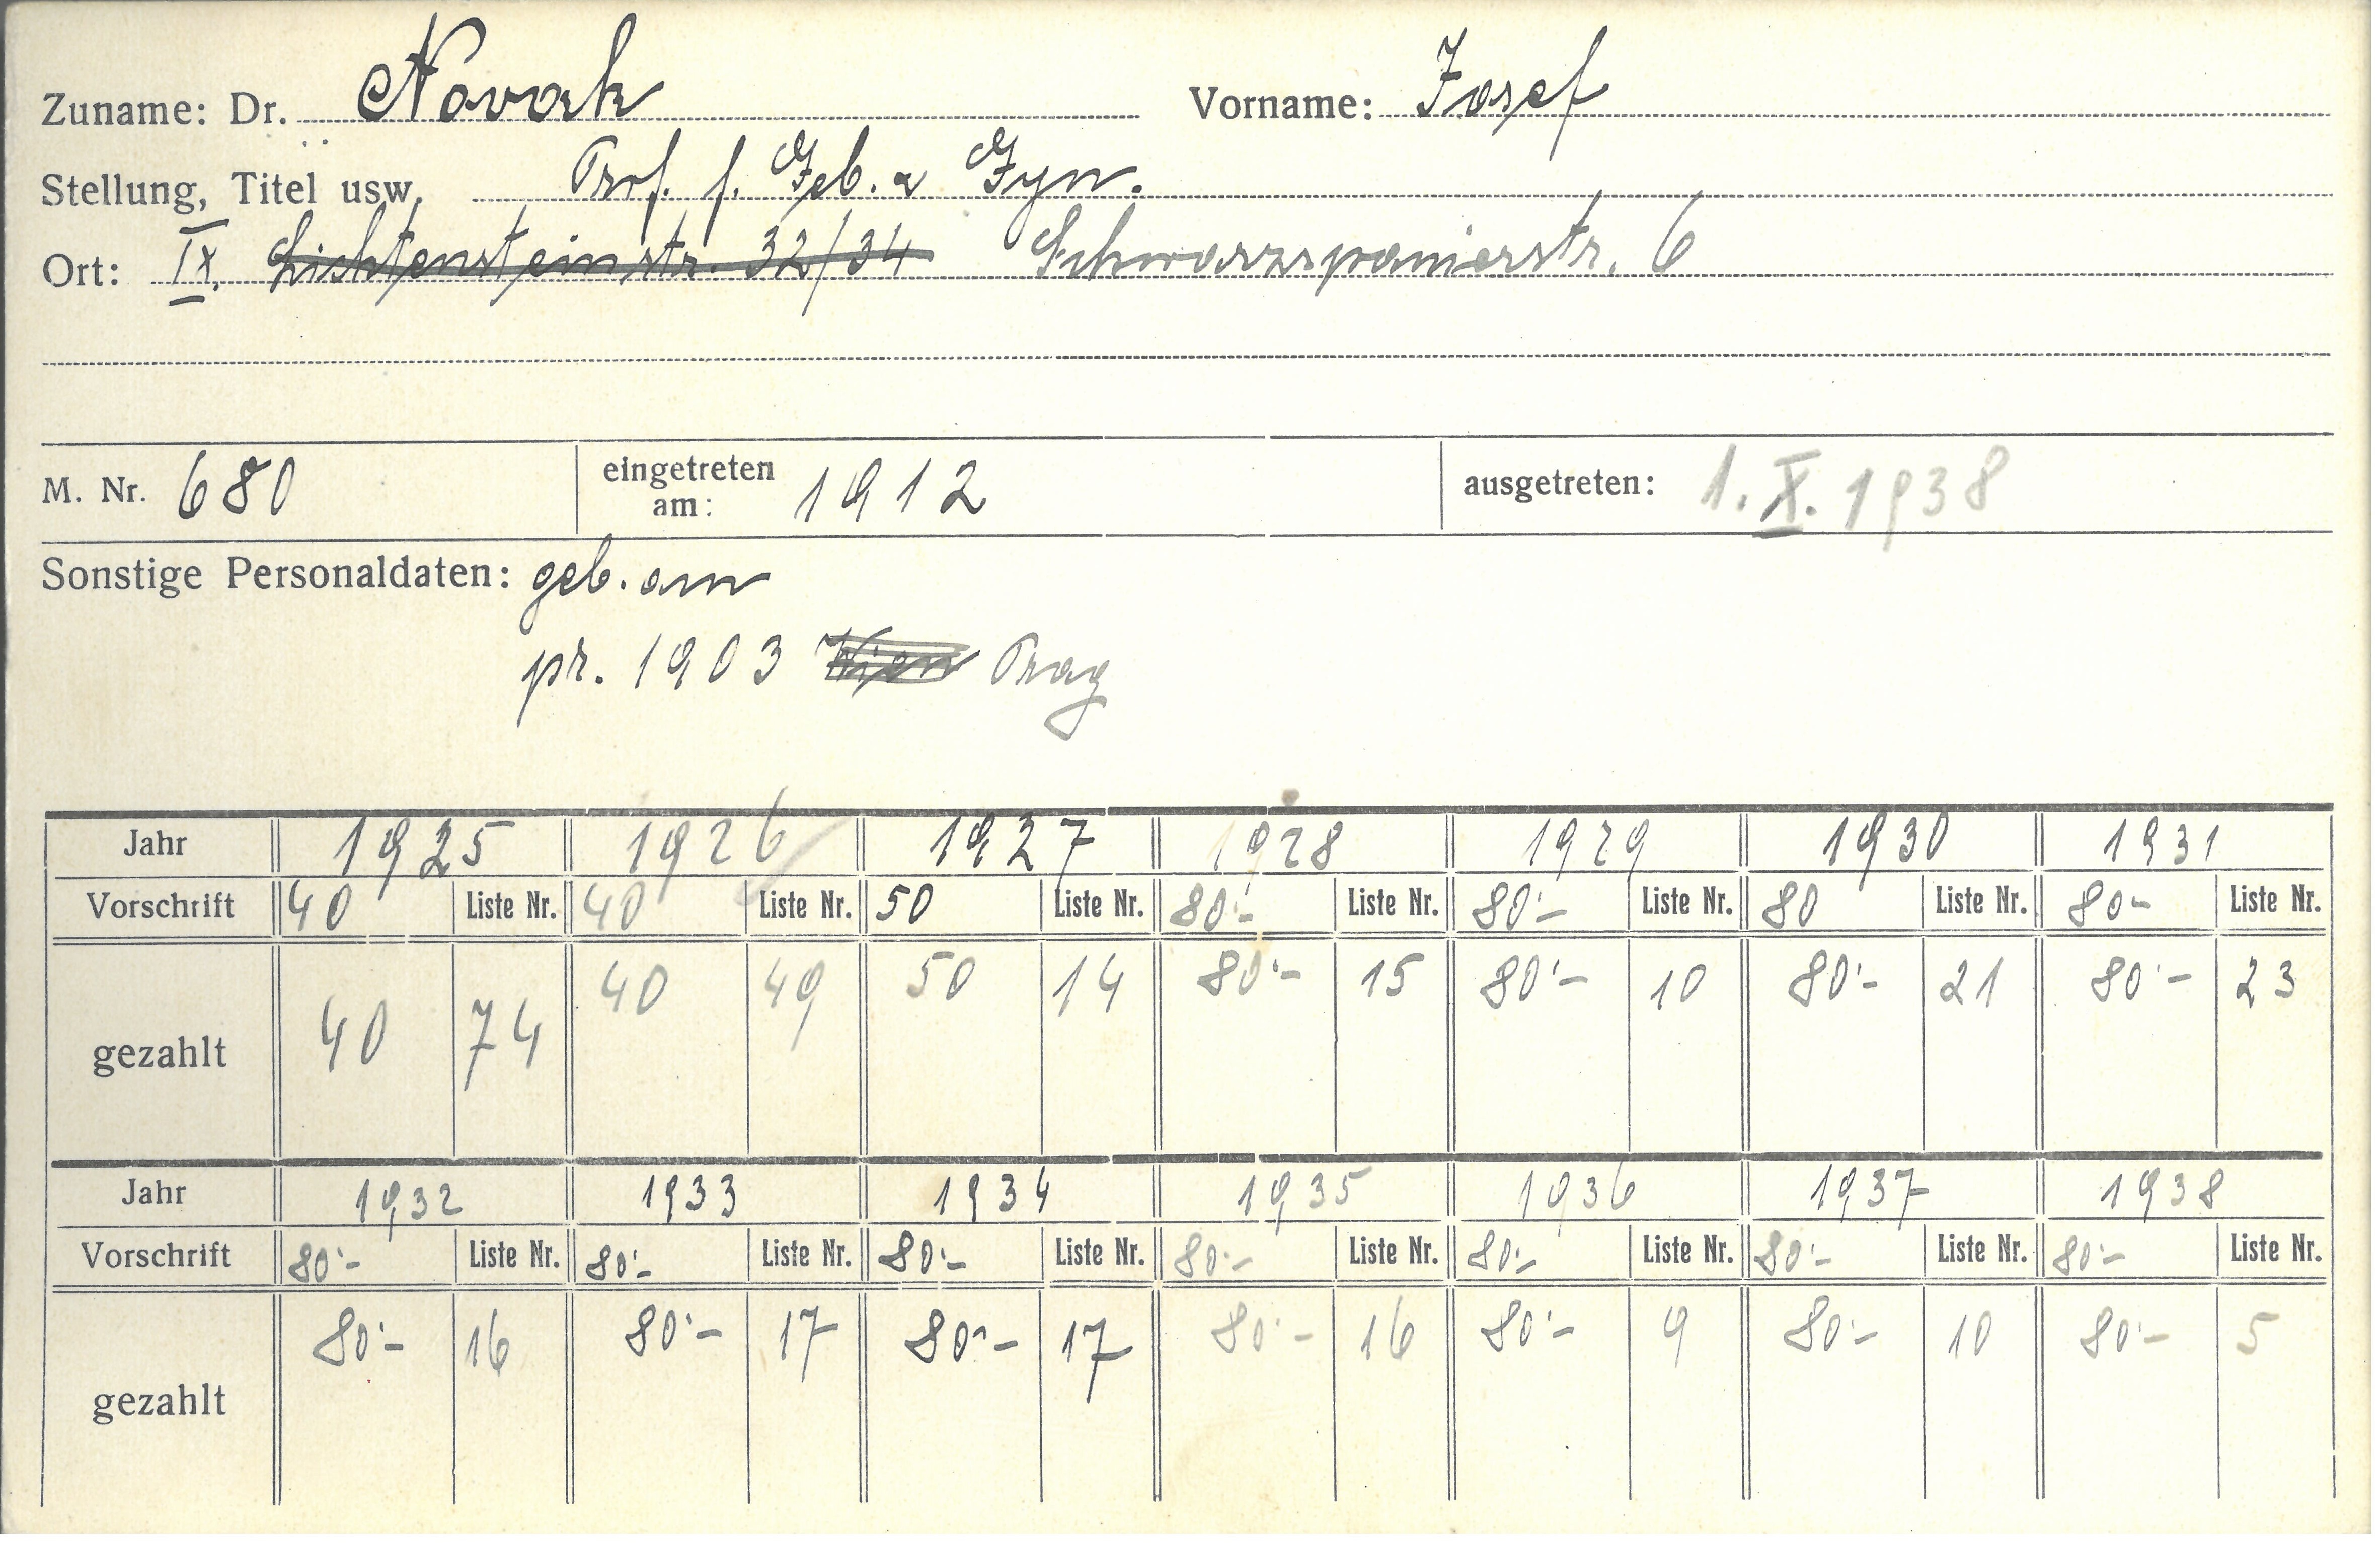 Zuname: Dr. Novak Vorname: Josef
Stellung, Titel usw. Prof. f. Geb. u Gyn.
Ort: IX. Lichtensteinstr. 32/34 Schwarzspanierstr. 6
M. Nr. 680 eingetreten am: 1912 ausgetreten: 1. X. 1938
Sonstige Personaldaten: geb. am
pr. 1903 Wien Prag
Jahr 1925 1926 1927 1928 1929 1930 1931
Vorschrift 40 Liste Nr. 40 Liste Nr. 50 Liste Nr. 80·- Liste Nr. 80·- Liste Nr. 80 Liste Nr. 80- Liste Nr.
gezahlt 40 74 40 49 50 14 80·- 15 80·- 10 80·- 21 80·- 23
Jahr 1932 1933 1934 1935 1936 1937 1938
Vorschrift 80·- Liste Nr. 80·- Liste Nr. 80·- Liste Nr. 80·- Liste Nr. 80·- Liste Nr. 80·- Liste Nr. 80·- Liste Nr.
gezahlt 80·- 16 80·- 17 80·- 17 80·- 16 80·- 9 80·- 10 80·- 5